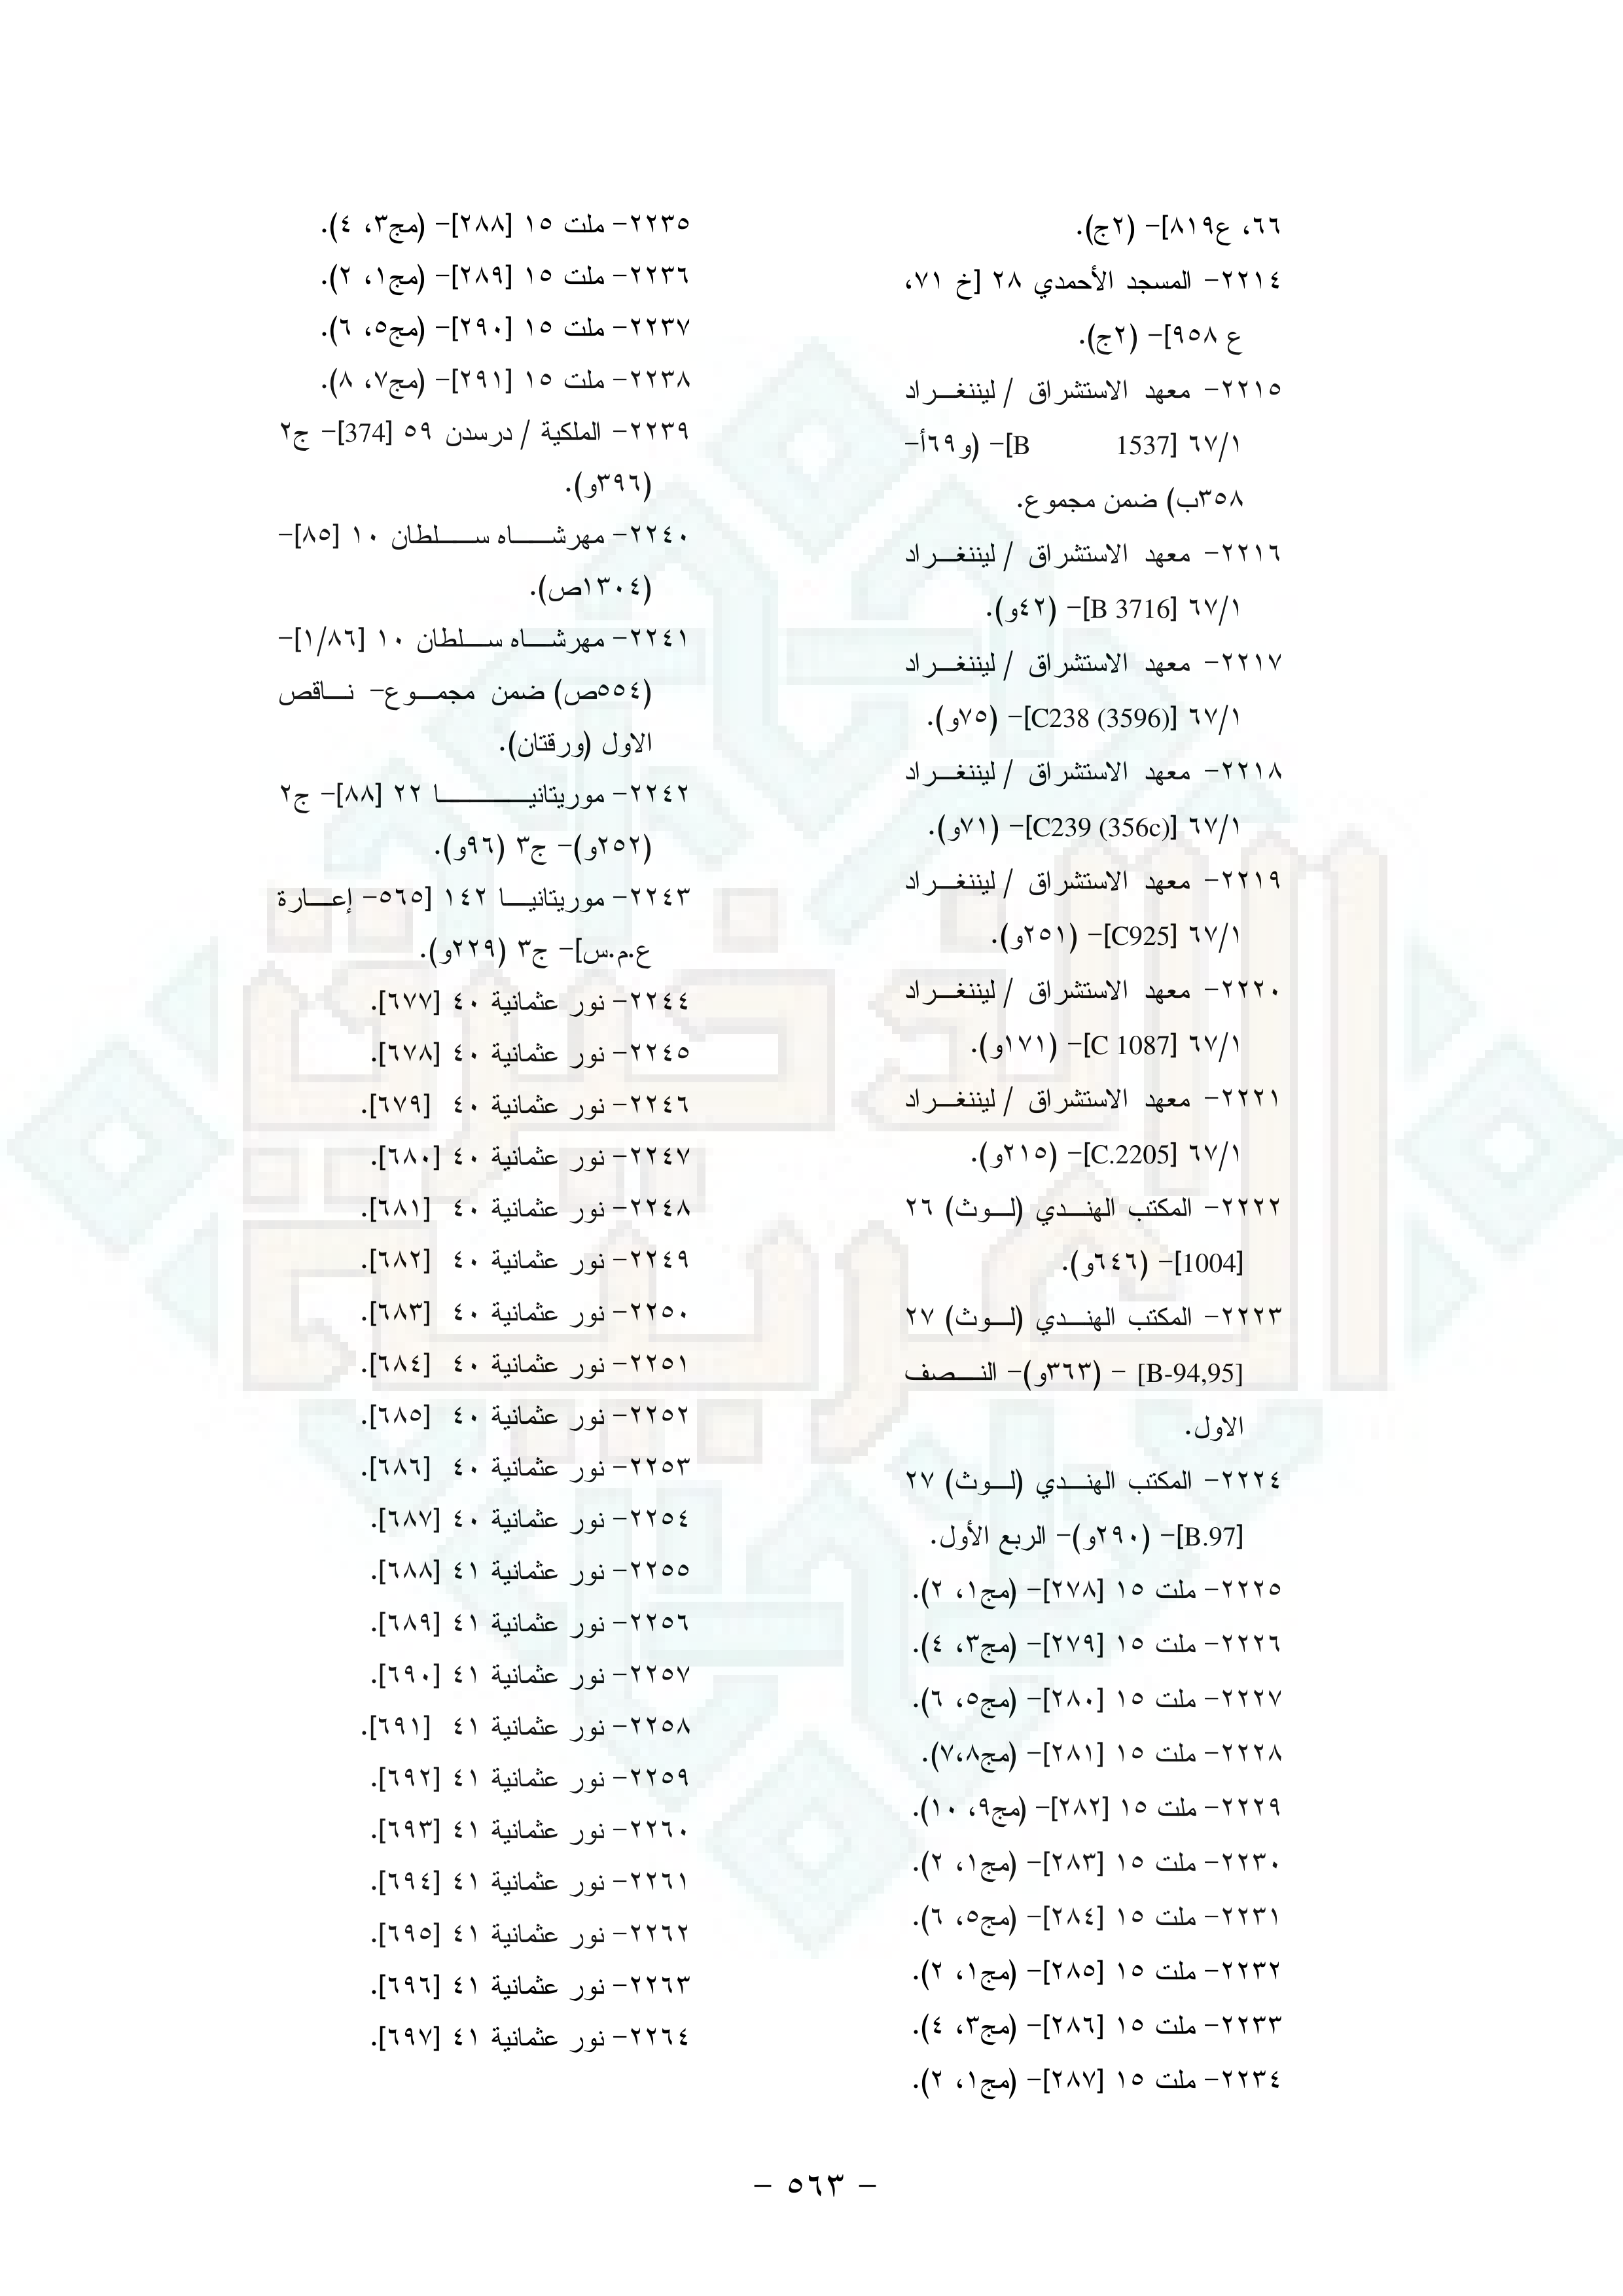 ٦٦، ع٨١٩]- (٢ج).
٢٢١٤- المسجد الأحمدي ٢٨ [خ ٧١،
ع ٩٥٨]- (٢ج).
٢٢١٥- معهد الاستشراق / ليننغراد
٦٧/١ [B 1537]- (و٦٩أ-
٣٥٨ب) ضمن مجموع.
٢٢١٦- معهد الاستشراق / ليننغراد
٦٧/١ [B 3716]- (٤٢و).
٢٢١٧- معهد الاستشراق / ليننغراد
٦٧/١ [C238 (3596)]- (٧٥و).
٢٢١٨- معهد الاستشراق / ليننغراد
٦٧/١ [C239 (356c)]- (٧١و).
٢٢١٩- معهد الاستشراق / ليننغراد
٦٧/١ [C925]- (٢٥١و).
٢٢٢٠- معهد الاستشراق / ليننغراد
٦٧/١ [C 1087]- (١٧١و).
٢٢٢١- معهد الاستشراق / ليننغراد
٦٧/١ [C.2205]- (٢١٥و).
٢٢٢٢- المكتب الهندي (لوث) ٢٦
[1004]- (٦٤٦و).
٢٢٢٣- المكتب الهندي (لوث) ٢٧
[B-94,95] - (٣٦٣و)- النصف
الاول.
٢٢٢٤- المكتب الهندي (لوث) ٢٧
[B.97]- (٢٩٠و)- الربع الأول.
٢٢٢٥- ملت ١٥ [٢٧٨]- (مج١، ٢).
٢٢٢٦- ملت ١٥ [٢٧٩]- (مج٣، ٤).
٢٢٢٧- ملت ١٥ [٢٨٠]- (مج٥، ٦).
٢٢٢٨- ملت ١٥ [٢٨١]- (مج٧،٨).
٢٢٢٩- ملت ١٥ [٢٨٢]- (مج٩، ١٠).
٢٢٣٠- ملت ١٥ [٢٨٣]- (مج١، ٢).
٢٢٣١- ملت ١٥ [٢٨٤]- (مج٥، ٦).
٢٢٣٢- ملت ١٥ [٢٨٥]- (مج١، ٢).
٢٢٣٣- ملت ١٥ [٢٨٦]- (مج٣، ٤).
٢٢٣٤- ملت ١٥ [٢٨٧]- (مج١، ٢).
٢٢٣٥- ملت ١٥ [٢٨٨]- (مج٣، ٤).
٢٢٣٦- ملت ١٥ [٢٨٩]- (مج١، ٢).
٢٢٣٧- ملت ١٥ [٢٩٠]- (مج٥، ٦).
٢٢٣٨- ملت ١٥ [٢٩١]- (مج٧، ٨).
٢٢٣٩- الملكية / درسدن ٥٩ [374]- ج٢
(٣٩٦و).
٢٢٤٠- مهرشاه سلطان ١٠ [٨٥]-
(١٣٠٤ص).
٢٢٤١- مهرشاه سلطان ١٠ [١/٨٦]-
(٥٥٤ص) ضمن مجموع- ناقص
الاول (ورقتان).
٢٢٤٢- موريتانيا ٢٢ [٨٨]- ج٢
(٢٥٢و)- ج٣ (٩٦و).
٢٢٤٣- موريتانيا ١٤٢ [٥٦٥- إعارة
ع.م.س]- ج٣ (٢٢٩و).
٢٢٤٤- نور عثمانية ٤٠ [٦٧٧].
٢٢٤٥- نور عثمانية ٤٠ [٦٧٨].
٢٢٤٦- نور عثمانية ٤٠ [٦٧٩].
٢٢٤٧- نور عثمانية ٤٠ [٦٨٠].
٢٢٤٨- نور عثمانية ٤٠ [٦٨١].
٢٢٤٩- نور عثمانية ٤٠ [٦٨٢].
٢٢٥٠- نور عثمانية ٤٠ [٦٨٣].
٢٢٥١- نور عثمانية ٤٠ [٦٨٤].
٢٢٥٢- نور عثمانية ٤٠ [٦٨٥].
٢٢٥٣- نور عثمانية ٤٠ [٦٨٦].
٢٢٥٤- نور عثمانية ٤٠ [٦٨٧].
٢٢٥٥- نور عثمانية ٤١ [٦٨٨].
٢٢٥٦- نور عثمانية ٤١ [٦٨٩].
٢٢٥٧- نور عثمانية ٤١ [٦٩٠].
٢٢٥٨- نور عثمانية ٤١ [٦٩١].
٢٢٥٩- نور عثمانية ٤١ [٦٩٢].
٢٢٦٠- نور عثمانية ٤١ [٦٩٣].
٢٢٦١- نور عثمانية ٤١ [٦٩٤].
٢٢٦٢- نور عثمانية ٤١ [٦٩٥].
٢٢٦٣- نور عثمانية ٤١ [٦٩٦].
٢٢٦٤- نور عثمانية ٤١ [٦٩٧].
- ٥٦٣ -